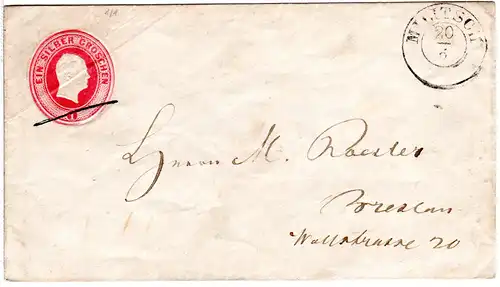 EIN SILBER GROSCHEN
1
MILITSCH
20
6
Herrn M. Roester
Breslau
Wallstrasse 20